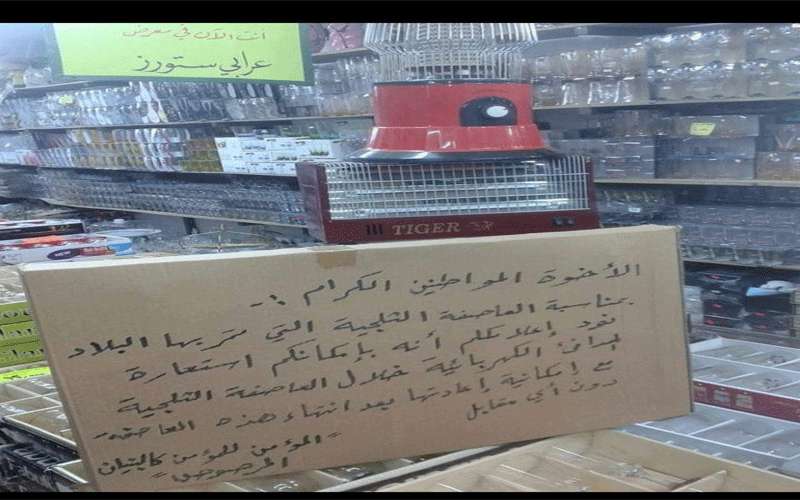 أنت الآن في معرض
عرابي ستورز
TIGER
الأخوة المواطنين الكرام :-
بمناسبة العاصفة الثلجية التي تمر بها البلاد
نود إعلامكم أنه بإمكانكم استعارة
المدافئ الكهربائية خلال العاصفة الثلجية
مع إمكانية إعادتها بعد انتهاء هذه العاصفة
دون أي مقابل
"المؤمن للمؤمن كالبنيان
المرصوص"